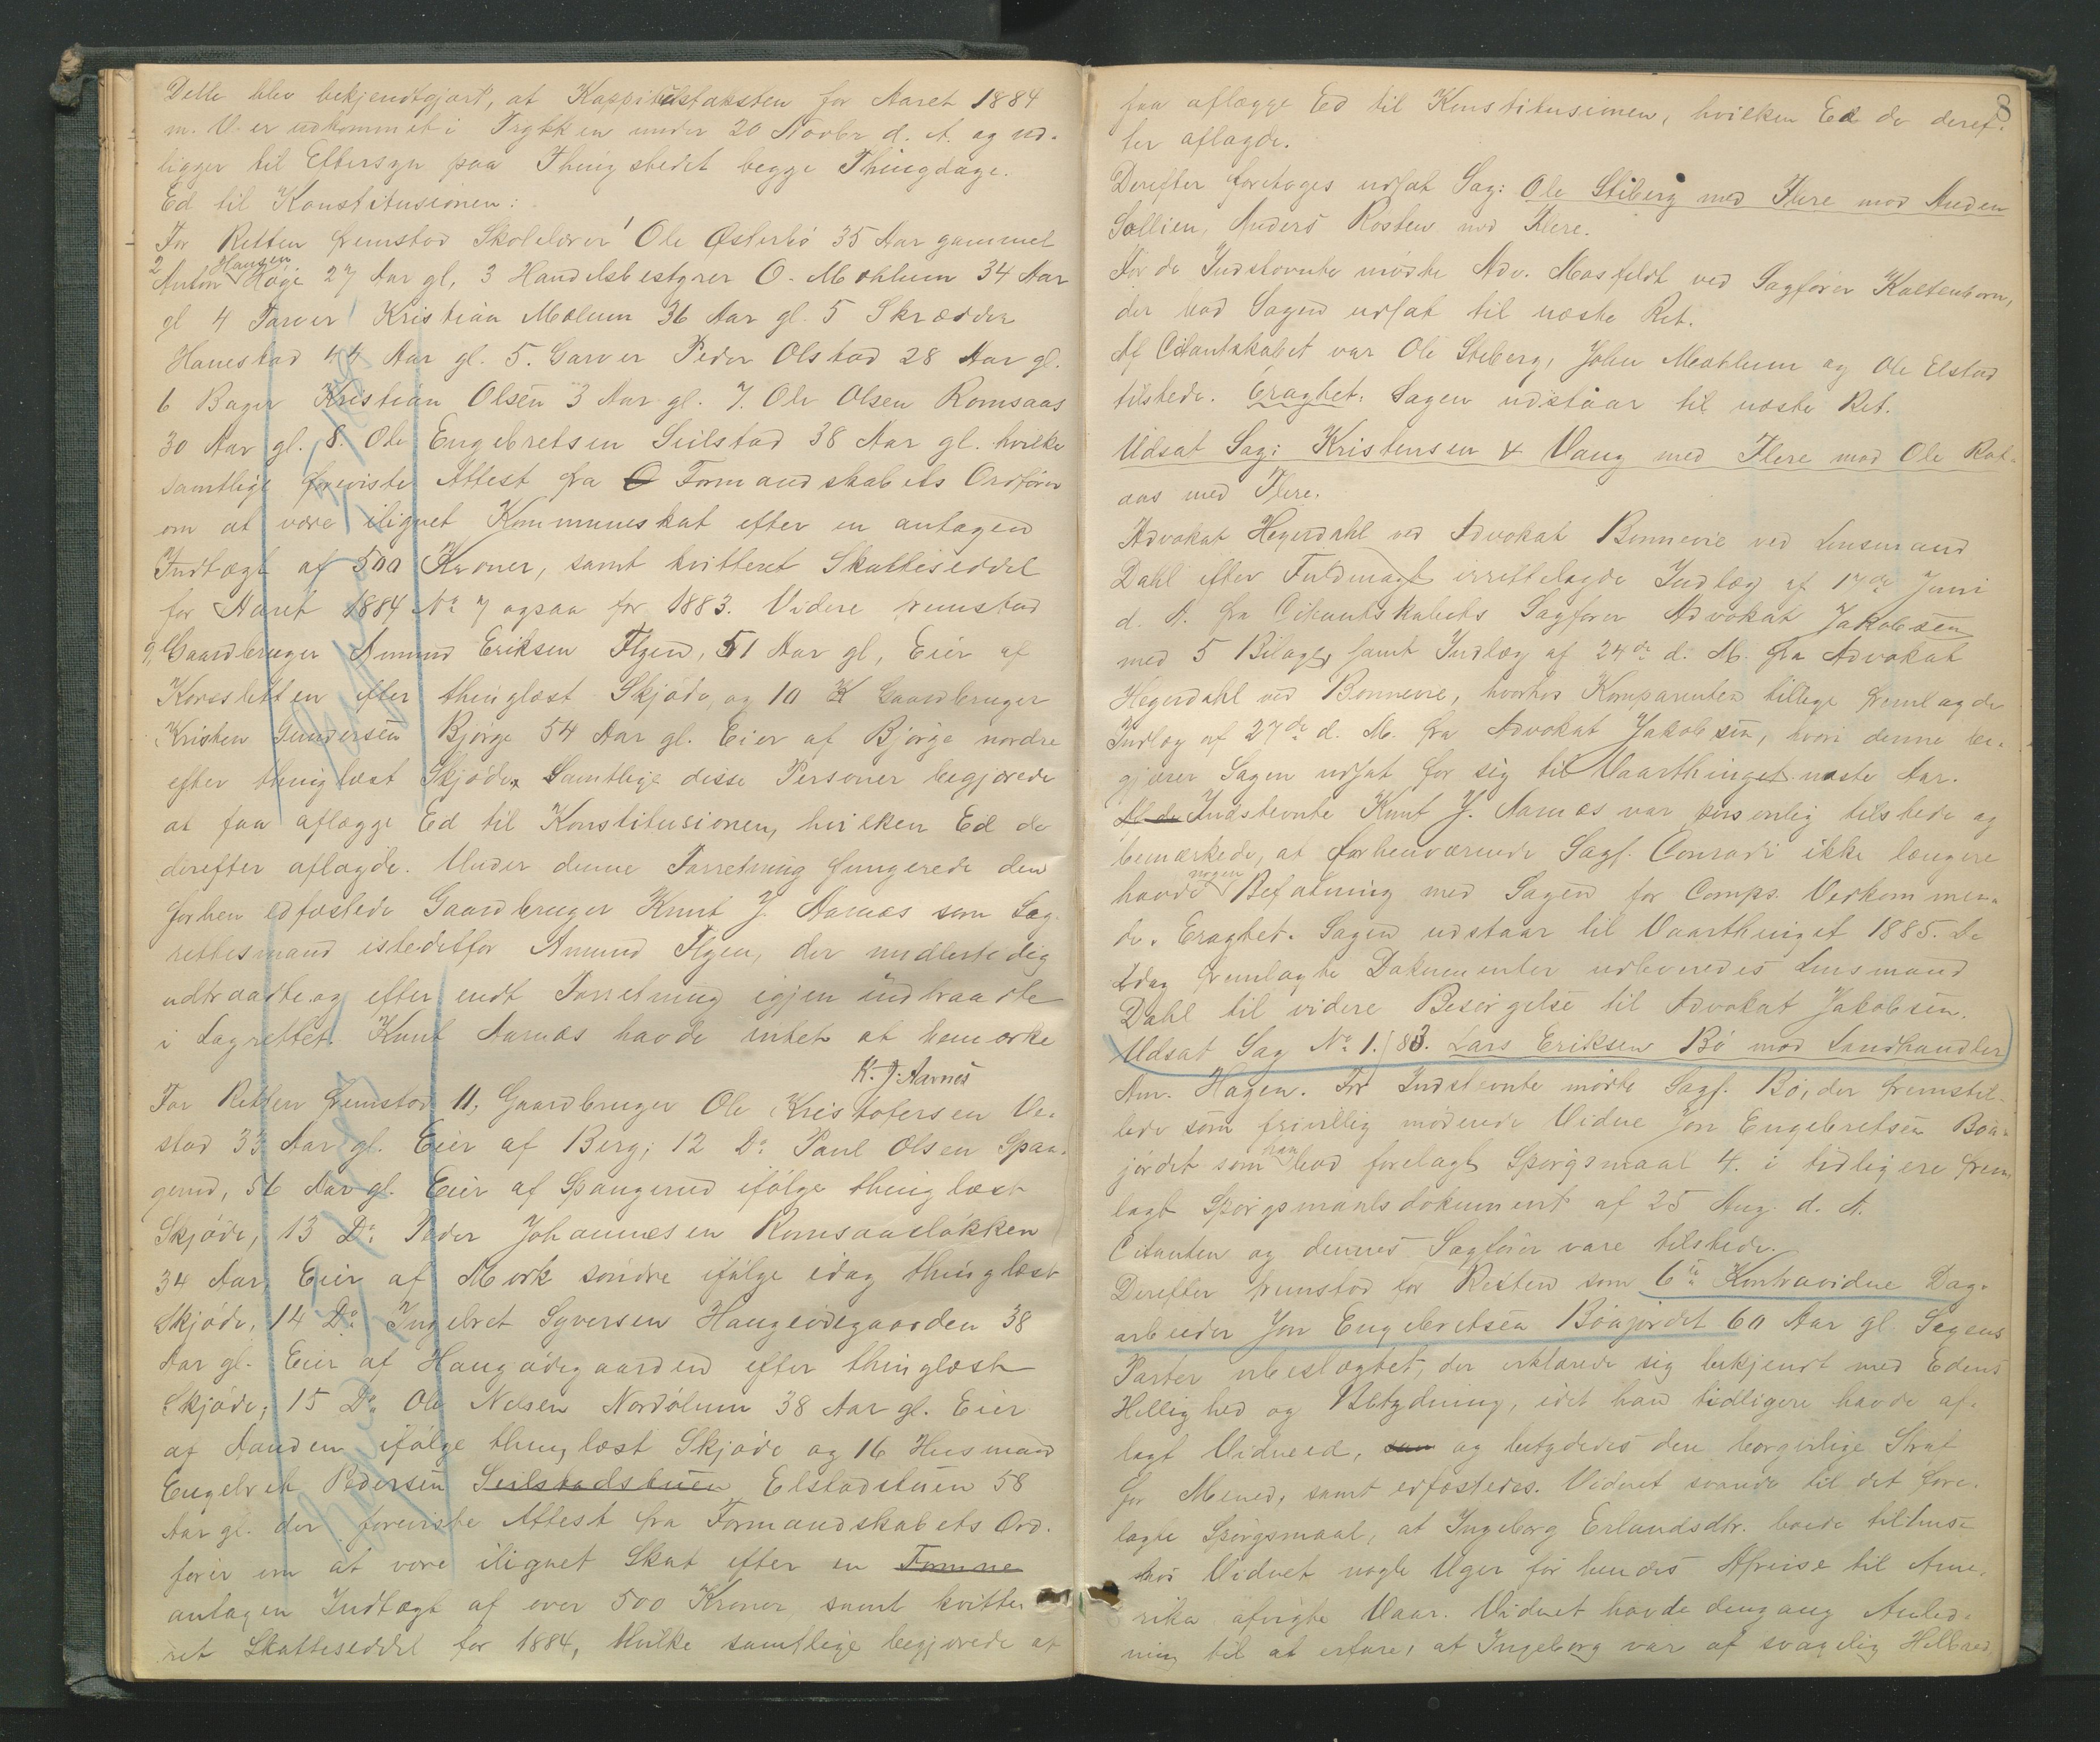 Dette blev bekjendtgjort, at Kappitelstaksten for Aaret 1884
m. V. er udkommet i Trykken under 20 Novbr d. A. og ud-
ligger til Eftersyn paa Thingstedet begge Thingdage.
Ed til Konstitusionen:
For Retten fremstod Skolelærer 1 Ole Østerbö 35 Aar gammel
2 Anton Hansen Hage 27 Aar gl, 3 Handelsbestyrer O. Mæhlum 34 Aar
gl 4 Farver Kristian Mælum 36 Aar gl. 5 Skrædder
Hanestad 44 Aar gl. 5. Garver Peder Olstad 28 Aar gl.
6 Bager Kristian Olsen 3 Aar gl. 7. Ole Olsen Romsaas
30 Aar gl. 8. Ole Engebretsen Seilstad 38 Aar gl. hvilke
samtlige foreviste Attest fra O Formandskabets Ordförer
om at være ilignet Kommuneskat efter en antagen
Indtægt af 500 Kroner, samt kvitteret Skatteseddel
for Aaret 1884 No 7 ogsaa for 1883. Videre fremstod
9, Gaardbruger Amund Eriksen Flyen, 51 Aar gl, Eier af
efter thinglæst Skjöde, og 10 K Gaardbruger
Kristen Gundersen Bjørge 54 Aar gl. Eier af Bjørge nordre
efter thinglæst Skjöde. Samtlige disse Personer begjærede
at faa aflægge Ed til Konstitusionen, hvilken Ed de
derefter aflagde. Under denne Forretning fungerede den
forhen edfæstede Gaardbruger Knut J. Aarnæs som Lag-
rettesmand istedetfor Amund Flyen, der midlertidig
udtraadte og efter endt Forretning igjen indtraadte
i Lagrettet. Knut Aarnæs havde intet at bemærke
K. J. Aarnæs
For Retten fremstod 11, Gaardbruger Ole Kristofersen Ve-
stad 33 Aar gl. Eier af Berg; 12 Do Paul Olsen Span-
gerud, 56 Aar gl. Eier af Spangerud ifölge thinglæst
Skjöde, 13 Do Peder Johannesen Romsaasløkken
34 Aar, Eier af Mørk söndre ifölge idag thinglæst
Skjöde, 14 Do Ingebret Syversen Haugeödegaarden 38
Aar gl. Eier af Haugödegaarden efter thinglæst
Skjöde; 15 Do Ole Nelsen Nordölum 38 Aar gl. Eier
af ifölge thinglæst Skjöde og 16 Husmand
Engebret Pedersen Seilstadstuen Elstadstuen 58
Aar gl. der foreviste Attest fra Formandskabets Ord-
förer om at være ilignet Skat efter en
antagen Indtægt af over 500 Kroner samt kvitte-
ret Skatteseddel for 1884, hvilke samtlige begjærede at
8
faa aflægge Ed til Konstitusionen, hvilken Ed de deref-
ter aflagde.
Derefter foretoges udsat Sag: Ole Stiberg med Flere mod Anden
Sollien, Anders Rosten med Flere.
For de Indstevnte mødte Adv. Mosfeldt ved Sagförer Kaltenborn,
der bad Sagen udsat til næste Ret.
Af Citantskabet var Ole Steberg, John Mæhlum og Ole Elstad
tilstede. Eragtet: Sagen udstaar til næste Ret.
Udsat Sag: Kristensen & Vaug med Flere mod Ole Rot-
aas med Flere.
Advokat Hegerdahl ved Advokat Bonnevie ved Lensmand
Dahl efter Fuldmagt irettelagde Indlæg af 17de Juni
d. A. fra Citantskabets Sagförer Advokat Jakobsen
med 5 Bilage, samt Indlæg af 24de d. M. fra Advokat
Hegerdahl ved Bonnevie, hvorhos Komparenten tillige fremlagde
Indlæg af 27de d. M. fra Advokat Jakobsen, hvori denne be-
gjærer Sagen udsat for sig til Vaarthinget næste Aar.
Af de Indstevnte Knut J. Aarnæs var personlig tilstede og
bemærkede, at forhenværende Sagf. Conradi ikke længere
havde nogen Befatning med Sagen for Comps. Vedkommen-
de. Eragtet. Sagen udstaar til Vaarthinget 1885. De
idag fremlagte Dokumenter udleveredes Lensmand
Dahl til videre Besörgelse til Advokat Jakobsen.
Udsat Sag No 1./83. Lars Eriksen Bö mod Landhandler
Am. Hagen. For Indstevnte mödte Sagf. Bö, der fremstil-
lede som frivillig mödende Vidne Jon Engebretsen Böa-
jordet som han bad forelagt Spörgsmaal 4. i tidligere frem-
lagt Spörgsmaalsdokument af 25 Aug. d. A.
Citanten og dennes Sagförer vare tilstede.
Derefter fremstod for Retten som 6te Kontravidne Dag-
arbeider Jon Engebretsen Böajordet 60 Aar gl. Sagens
Parter ubeslægtet, der erklærede sig bekjendt med Edens
Hellighed og Betydning, idet han tidligere havde af-
lagt Vidneed, som og betydedes den borgerlige Straf
for Mened, samt edfæstedes. Vidnet svarede til det fore-
lagte Spörgsmaal, at Ingeborg Erlandsdtr. boede tilhuse
hos Vidnet nogle Uger för hendes Afreise til Ame-
rika afvigte Vaar. Vidnet havde dengang Anled-
ning til at erfare, at Ingeborg var af svagelig Helbred